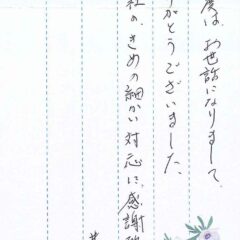 度は、お世話になりまして、
がとうございました。
社の、きめの細かい対応に、感謝致